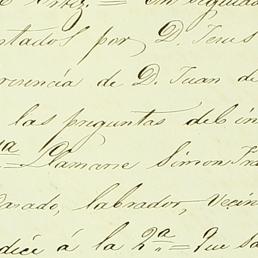 Ortiz. = En seguida
ntados por D. Jenes
resencia de D. Juan de
las preguntas del in
1ª = Llamarse Simon Fra
Casado, labrador, Vecin
dice á la 2ª = Que sa